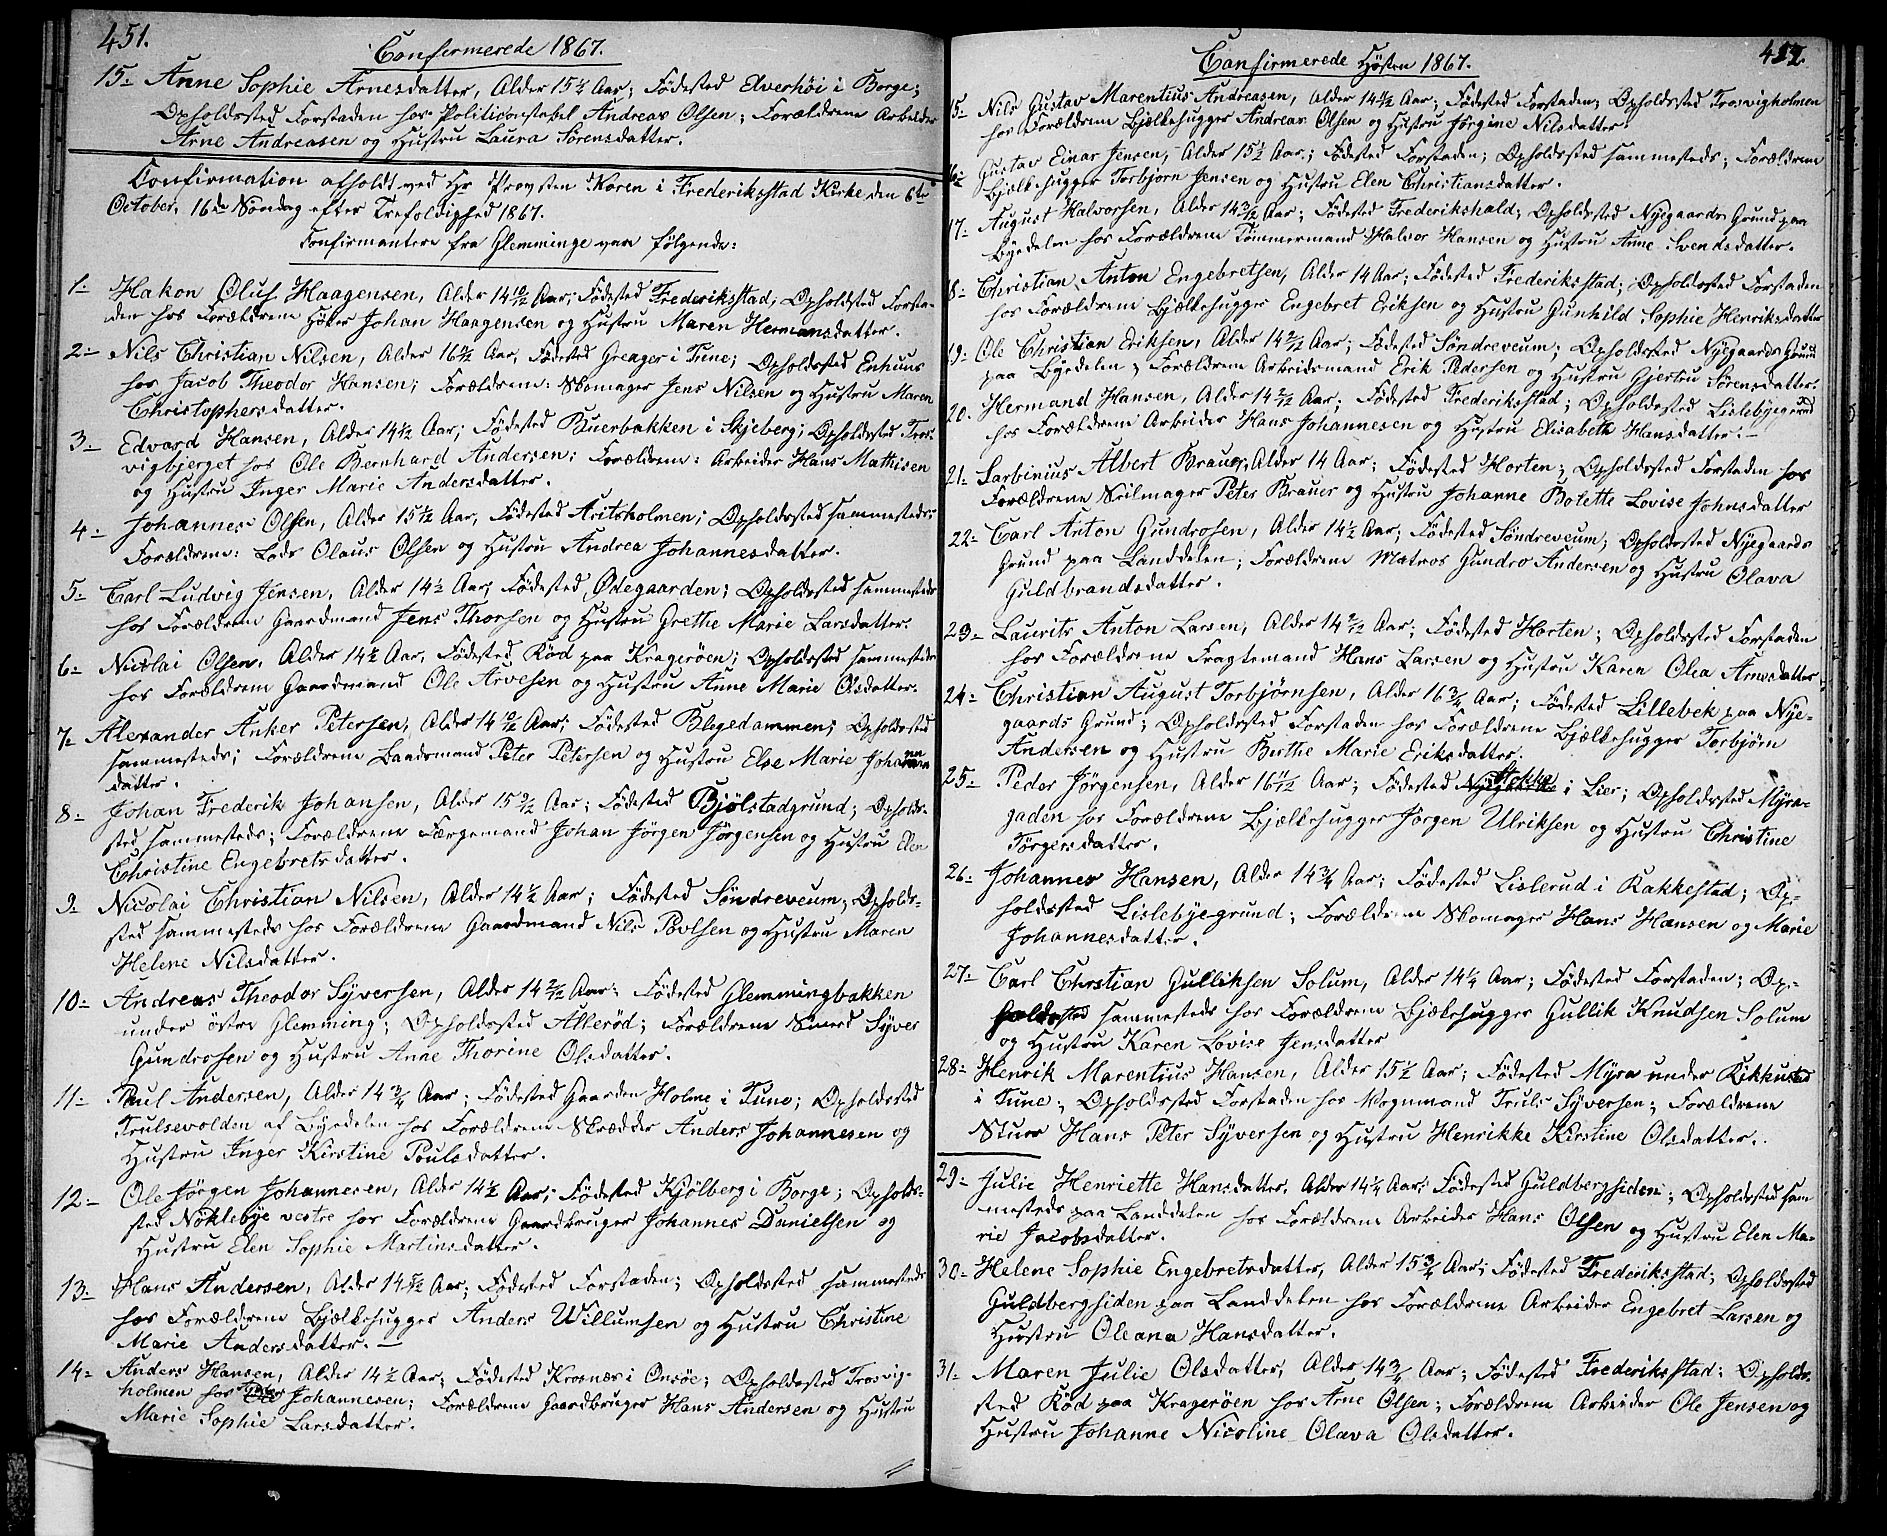 451.
Confirmerede 1867.
15- Anne Sophie Arnesdatter, Alder 15 1/4 Aar; Fødested Elverhöi i Borge;
Opholdssted Forstaden hos Politiconstabel Andreas Olsen; Forældrene Arbeider
Arne Andreasen og Hustru Laura Sörensdatter.
Confirmation afholdt ved Hr Provsten Koren i Frederiksstad Kirke den 6te
October, 16de Søndag efter Trefoldighed 1867.
Confirmantere fra Glemminge vare følgende:
1- Hakon Oluf Haagensen, Alder 14 10/12 Aar; Födested Frederiksstad; Opholdssted Forsta-
den hos Forældrene Höker Johan Haagensen og Hustru Maren Hermansdatter.
2- Nils Christian Nilsen, Alder 16 Aar, Födested Greager i Tune; Opholdssted Enhuus
hos Jacob Theodor Hansen; Forældrene: Skomager Jens Nilsen og Hustru Maren
Christophersdatter.
3- Edvard Hansen, Alder 14 1/2 Aar; Födested Buerbakken i Skjeberg; Opholdssted Tros-
vigbjerget hos Ole Bernhard Andersen; Forældrene: Arbeider Hans Mathisen
og Hustru Inger Marie Andersdatter.
4- Johannes Olsen, Alder 15 1/2 Aar, Födested Aritsholmen; Opholdssted sammesteds;
Forældrene: Lods Olaus Olsen og Hustru Andrea Johannesdatter.
5- Carl Ludvig Jensen, Alder 14 1/2 Aar, Födested Ødegaarden; Opholdssted sammesteds
hos Forældrene Gaardmand Jens Thorsen og Hustru Grethe Marie Larsdatter.
6- Nicolai Olsen, Alder 14 1/2 Aar, Födested Röd paa Kragerøen; Opholdssted sammesteds
hos Forældrene Gaardmand Ole Arvesen og Hustru Anne Marie Olsdatter.
7- Alexander Anker Petersen, Alder 14 10/12 Aar; Födested Blegedammen; Opholdssted
sammesteds; Forældrene Baadsmand Peter Petersen og Hustru Else Marie Johannes
datter.
8- Johan Frederik Johansen, Alder 15 9/12 Aar; Födested Bjölstadgrund; Opholds-
sted sammesteds; Forældrene Færgemand Johan Jörgen Jörgensen og Hustru Elen
Christine Engebretsdatter.
9- Nicolai Christian Nilsen, Alder 14 1/2 Aar; Födested Söndreveum; Opholds-
sted sammesteds hos Forældrene Gaardmand Nils Povlsen og Hustru Maren
Helene Nilsdatter.
10- Andreas Theodor Syversen, Alder 14 2/12 Aar; Födested Glemmingbakken
under östre Glemming; Opholdssted Allerød; Forældrene Smed Syver
Gundrosen og Hustru Anne Thorine Olsdatter.
11- Paul Andersen, Alder 14 3/4 Aar; Födested Gaarden Holme i Tune; Opholdssted
Trulsevolden af Byedelen hos Forældrene Skrædder Anders Johannesen og
Hustru Inger Kirstine Poulsdatter.
12- Ole Jörgen Johannesen, Alder 14 1/2 Aar; Födested Kjölberg i Borge; Opholds-
sted Nöklebye vestre hos Forældrene Gaardbruger Johannes Danielsen og
Hustru Elen Sophie Martinsdatter.
13- Hans Andersen, Alder 14 5/12 Aar; Födested Forstaden; Opholdssted sammesteds
hos Forældrene Bjælkehugger Anders Willumsen og Hustru Christine
Marie Andersdatter. -
14- Anders Hansen, Alder 14 1/2 Aar; Födested Krosnæs i Onsöe; Opholdssted Trosvig-
holmen hos Johannesen; Forældrene Gaardbruger Hans Andersen og Hustru
Marie Sophie Larsdatter.
452.
Confirmerede Hösten 1867.
15- Nils Gustav Marentius Andreasen, Alder 14 Aar; Födested Forstaden; Opholdssted Trosvigholmen
hos Forældrene Bjælkehugger Andreas Olsen og Hustru Jörgine Nilsdatter.
16- Gustav Einar Jensen, Alder 15 1/2 Aar; Födested Forstaden; Opholdssted sammesteds; Forældrene
Bjælkehugger Torbjørn Jensen og Hustru Elen Christiansdatter.
17- August Halvorsen, Alder 14 3/12 Aar; Födested Frederikshald; Opholdssted Nyegaards Grund paa
Byedelen hos Forældrene Tömmermand Halvor Hansen og Hustru Anne Svendsdatter.
18- Christian Anton Engebretsen, Alder 14 Aar; Födested Frederiksstad; Opholdssted Forstaden
hos Forældrene Bjælkehugger Engebret Eriksen og Hustru Gunhild Sophie Henriksdatter
19- Ole Christian Eriksen, Alder 14 2/12 Aar; Födested Söndreveum; Opholdssted Nyegaards Grund
paa Byedelen; Forældrene Arbeidsmand Erik Pedersen og Hustru Gjertru Sörensdatter.
20. Hermand Hansen, Alder 14 2/12 Aar; Födested Frederiksstad; Opholdssted Lislebyegrund
hos Forældrene Arbeider Hans Johannesen og Hustru Elisabeth Hansdatter. -
21- Sarbinius Albert Brauer, Alder 14 Aar; Födested Horten; Opholdssted Forstaden hos
Forældrene Seilmager Peter Brauer og Hustru Johanne Bolette Lovise Johnsdatter
22- Carl Anton Gundrosen, Alder 14 1/2 Aar; Födested Söndreveum; Opholdssted Nyegaards
Grund paa Landdelen; Forældrene Matros Gundro Andersen og Hustru Olava
Guldbrandsdatter.
23- Laurits Anton Larsen, Alder 14 2/12 Aar; Födested Horten; Opholdssted Forstaden
hos Forældrene Fragtemand Hans Larsen og Hustru Karen Olea Arnesdatter
24- Christian August Torbjørnsen, Alder 16 3/4 Aar; Födested Lillebek paa Nye-
gaards Grund; Opholdssted Forstaden hos Forældrene Bjælkehugger Torbjörn
Andersen og Hustru Berthe Marie Eriksdatter.
25- Peder Jörgensen, Alder 16 Aar; Födested i Lier; Opholdssted Myra-
gaden hos Forældrene Bjælkehugger Jörgen Ulriksen og Hustru Christine
Törgersdatter.
26- Johannes Hansen, Alder 14 3/4 Aar; Födested Lislerud i Rakkestad; Op-
holdssted Lislebyegrund; Forældrene Skomager Hans Hansen og Marie
Johannesdatter.
27- Carl Chrstian Gulliksen Solum, Alder 14 1/4 Aar; Födested Forstaden; Op-
holdssted sammesteds hos Forældrene Bjækehugger Gullik Knudsen Solum
og Hustru Karen Lovise Jensdatter
28- Henrik Marentius Hansen, Alder 15 1/2 Aar; Födested Myra under Kikkustad
i Tune; Opholdssted Forstaden hos Vognmand Truls Syversen; Forældrene
Stuer Hans Peter Syversen og Hustru Henrikke Kirstine Olsdatter.
29- Julie Henriette Hansdatter, Alder 14 1/4 Aar; Födested Guldbergsiden; Opholdssted sam-
mesteds paa Landdelen hos Forældrene Arbeider Hans Olsen og Hustru Elen Ma-
rie Jacobsdatter.
30- Helene Sophie Engebretsdatter, Alder 15 3/4 Aar; Födested Frederiksstad; Opholdssted
Guldbergsiden paa Landdelen hos Forældrene Arbeider Engebret Larsen og
Hustru Oleana Hansdatter.
31- Maren Julie Olsdatter, Alder 14 3/4 Aar; Födested Frederiksstad; Opholds-
sted Röd paa Kragerøen hos Arne Olsen; Forældrene Arbeider Ole Jensen og
Hustru Johanne Nicoline Olava Olsdatter.